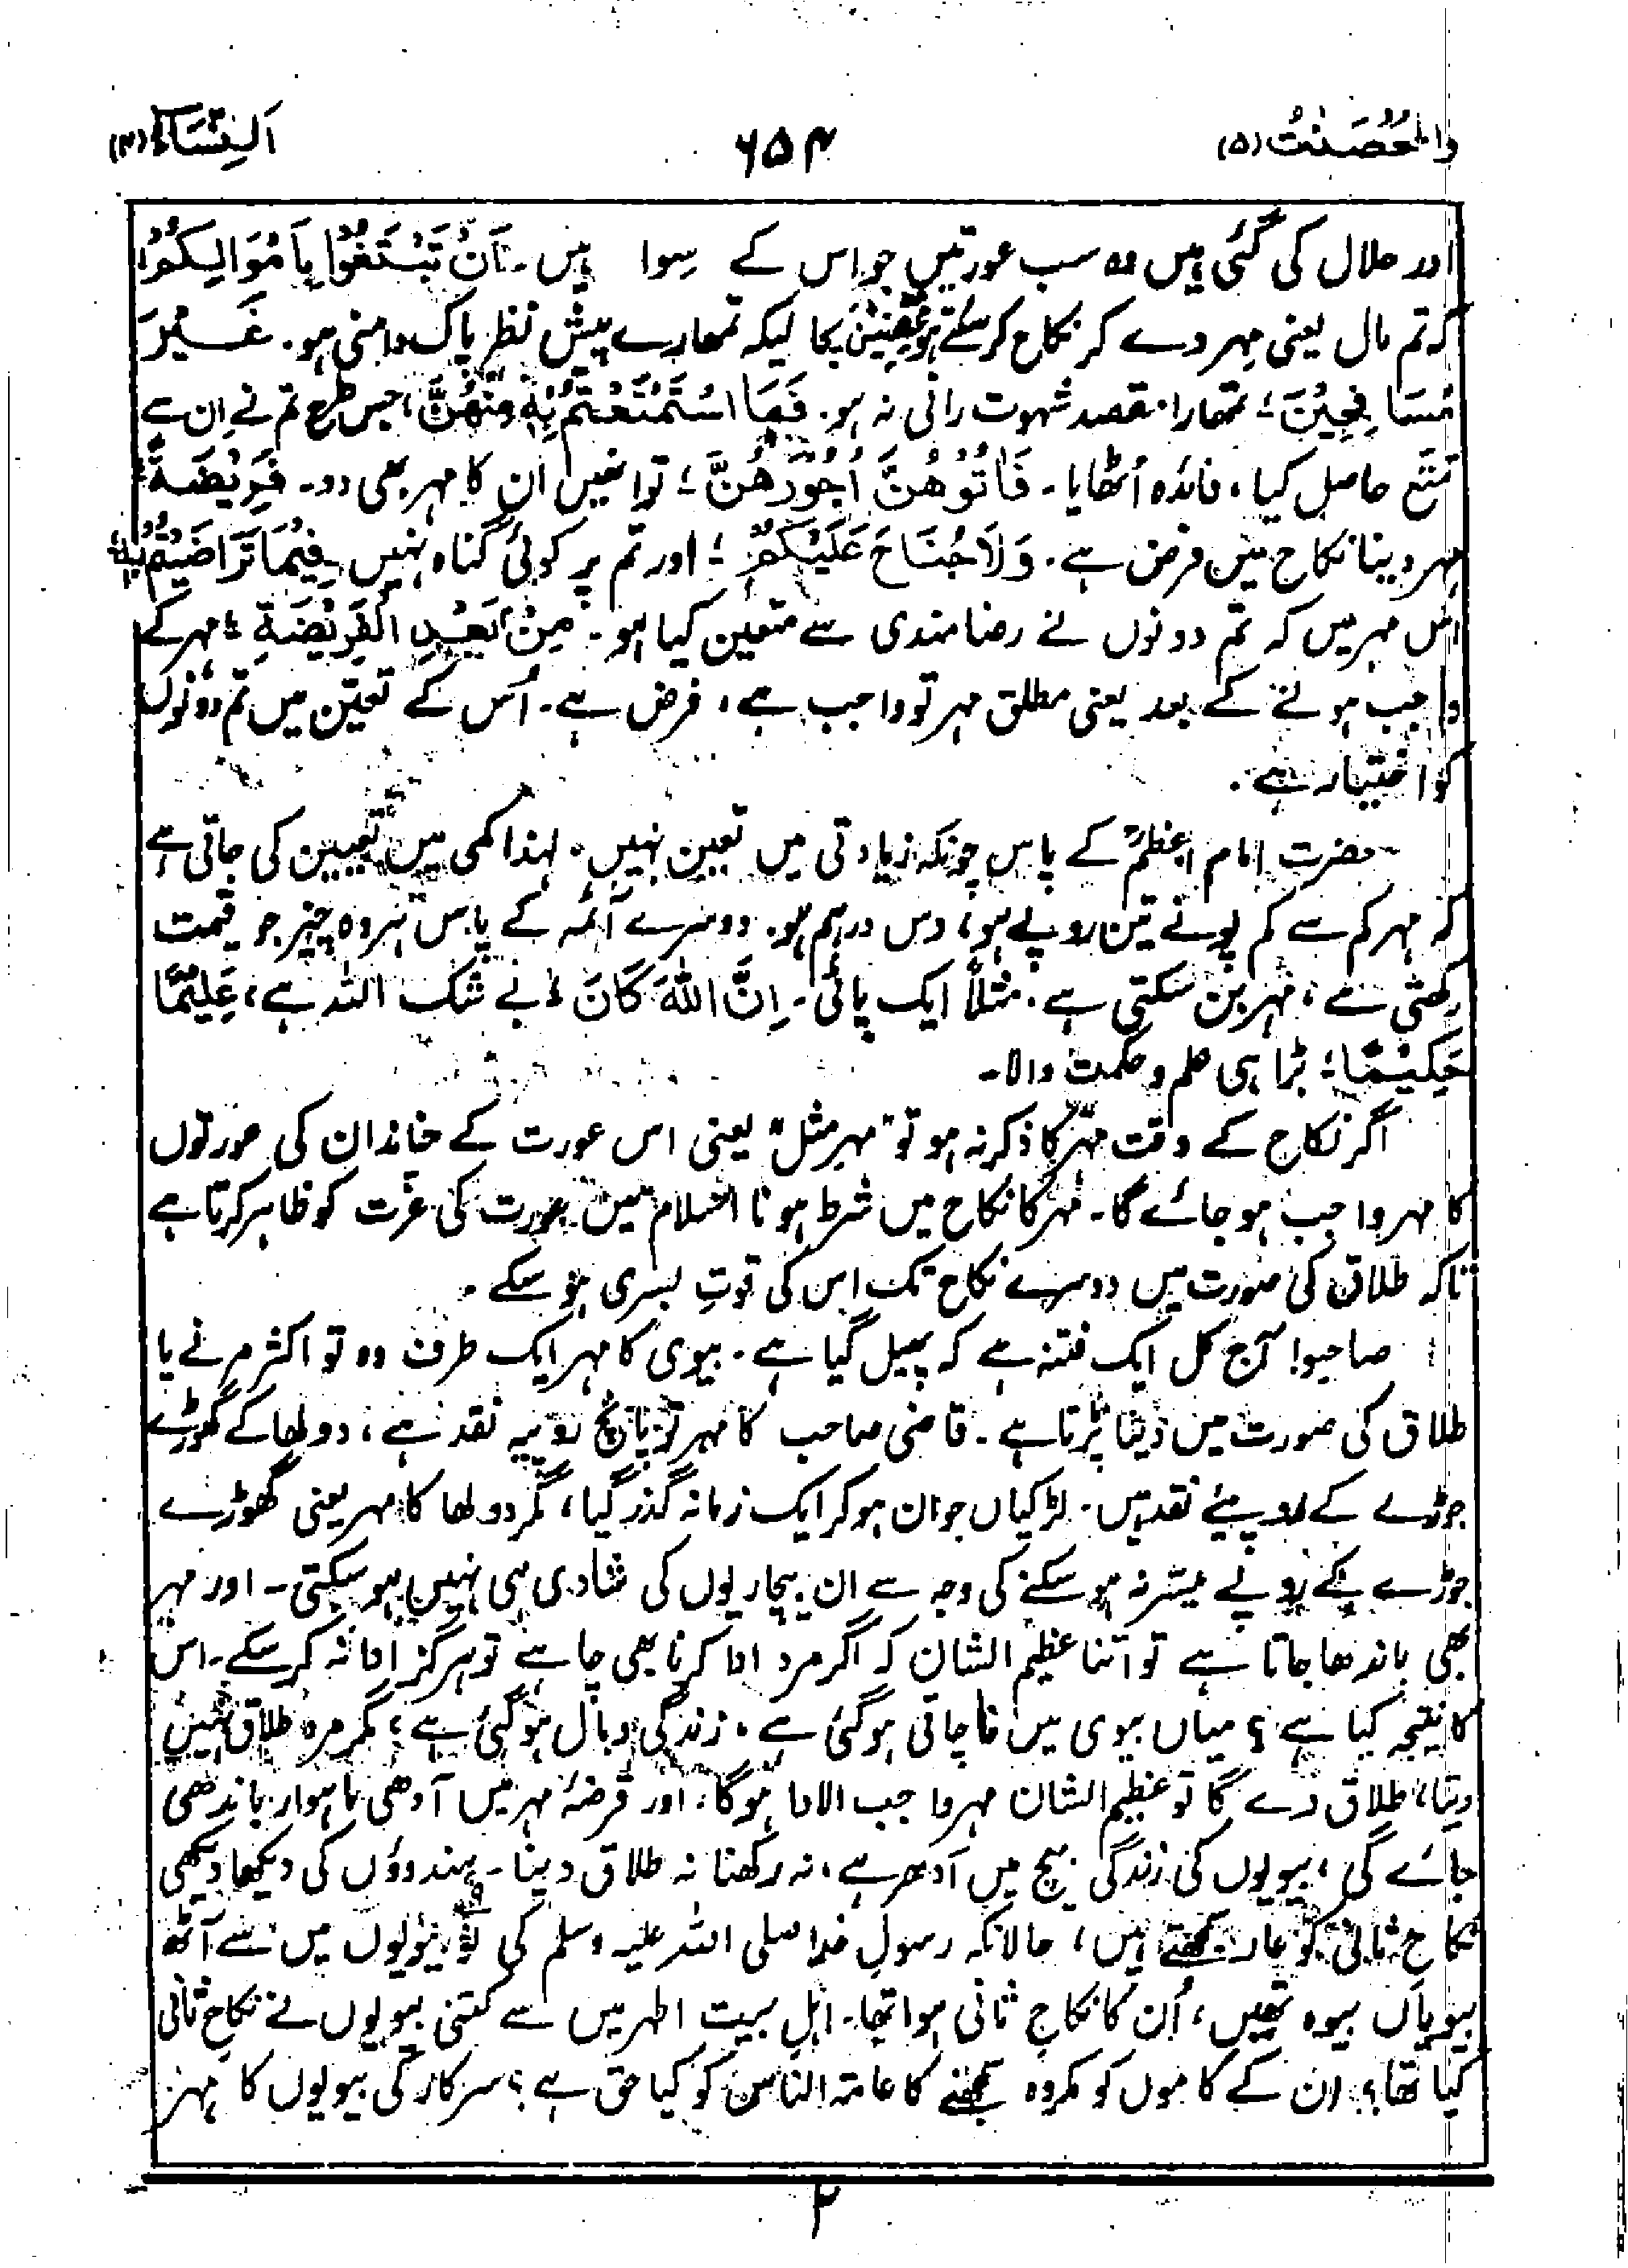 والمحصنٰت (۵)
۶۵۴
اَلنِّسَآء (۴)
اور حلال کی گئی ہیں وہ سب عورتیں جو اس کے سِوا ہیں۔ اَنْ تَبْتَغُوْا بِاَمْوَالِكُمْ؛
کہ تم مال یعنی مِہر دے کر نکاح کر سکتے ہو مُّحْصِنِيْنَ بحالیکہ تمھارے پیش نظر پاک دامنی ہو۔ غَيْرَ
مُسَافِحِيْنَ؛ تمھارا مقصد شہوت رانی نہ ہو۔ فَمَا اسْتَمْتَعْتُمْ بِهٖ مِنْهُنَّ؛ جس طرح تم نے اِن سے
تمتّع حاصل کیا، فائدہ اُٹھایا۔ فَاٰتُوْهُنَّ اُجُوْرَهُنَّ؛ تو انھیں ان کا مہر بھی دو۔ فَرِيْضَةً؛
مِہر دینا نکاح میں فرض ہے۔ وَلَا جُنَاحَ عَلَيْكُمْ؛ اور تم پر کوئی گناہ نہیں فِيْمَا تَرَاضَيْتُمْ بِهٖ؛
اس مہر میں کہ تم دونوں نے رضامندی سے متعین کیا ہو۔ مِنْ بَعْدِ الْفَرِيْضَةِ؛ مہر کے
واجب ہونے کے بعد یعنی مطلق مہر تو واجب ہے، فرض ہے۔ اُس کے تعیّن میں تم دونوں
کو اختیار ہے۔
حضرت امام اعظمؒ کے پاس چونکہ زیادتی میں تعین نہیں۔ لہذا کمی میں تعیین کی جاتی ہے
کہ مہر کم سے کم پونے تین روپے ہو، دس درہم ہو۔ دوسرے آئمہ کے پاس ہر وہ چیز جو قیمت
رکھتی ہے، مہر بن سکتی ہے۔ مثلاً ایک پائی۔ اِنَّ اللّٰهَ كَانَ؛ بے شک اللہ ہے، عَلِيْمًا
حَكِيْمًا؛ بڑا ہی علم و حکمت والا۔
اگر نکاح کے وقت مہر کا ذکر نہ ہو تو "مہر مثل" یعنی اس عورت کے خاندان کی عورتوں
کا مہر واجب ہو جائے گا۔ مہر کا نکاح میں شرط ہونا اسلام میں عورت کی عزّت کو ظاہر کرتا ہے
تاکہ طلاق کی صورت میں دوسرے نکاح تک اس کی قوتِ بسری ہو سکے۔
صاحبو! آج کل ایک فتنہ ہے کہ پھیل گیا ہے۔ بیوی کا مہر ایک طرف وہ تو اکثر مرنے یا
طلاق کی صورت میں دینا پڑتا ہے۔ قاضی صاحب کا مہر تو پانچ روپیہ نقد ہے، دولھا کے گھوڑے
جوڑے کے روپیئے نقد ہیں۔ لڑکیاں جوان ہو کر ایک زمانہ گذر گیا، مگر دولھا کا مہر یعنی گھوڑے
جوڑے کے روپے میسّر نہ ہو سکنے کی وجہ سے ان بیچاریوں کی شادی ہی نہیں ہو سکتی۔ اور مہر
بھی باندھا جاتا ہے تو اتنا عظیم الشان کہ اگر مرد ادا کرنا بھی چاہے تو ہرگز ادا نہ کر سکے۔ اس
کا نتیجہ کیا ہے؟ میاں بیوی میں ناچاقی ہو گئی ہے۔ زندگی وبال ہو گئی ہے، مگر مرد طلاق نہیں
دیتا، طلاق دے گا تو عظیم الشان مہر واجب الادا ہوگا، اور قرضۂ مہر میں آدھی ماہوار باندھی
جائے گی، بیویوں کی زندگی بیچ میں اَدھر ہے، نہ رکھنا نہ طلاق دینا۔ ہندوؤں کی دیکھا دیکھی
نکاحِ ثانی کو عار سمجھتے ہیں، حالانکہ رسولِ خدا صلی اللہ علیہ وسلم کی نو بیویوں میں سے آٹھ
بیویاں بیوہ تھیں، اُن کا نکاحِ ثانی ہوا تھا۔ اہلِ بیت اطہر میں سے کتنی بیویوں نے نکاحِ ثانی
کیا تھا؟ ان کے کاموں کو مکروہ سمجھنے کا عامۃ الناس کو کیا حق ہے؟ سرکار کی بیویوں کا مہر
۲